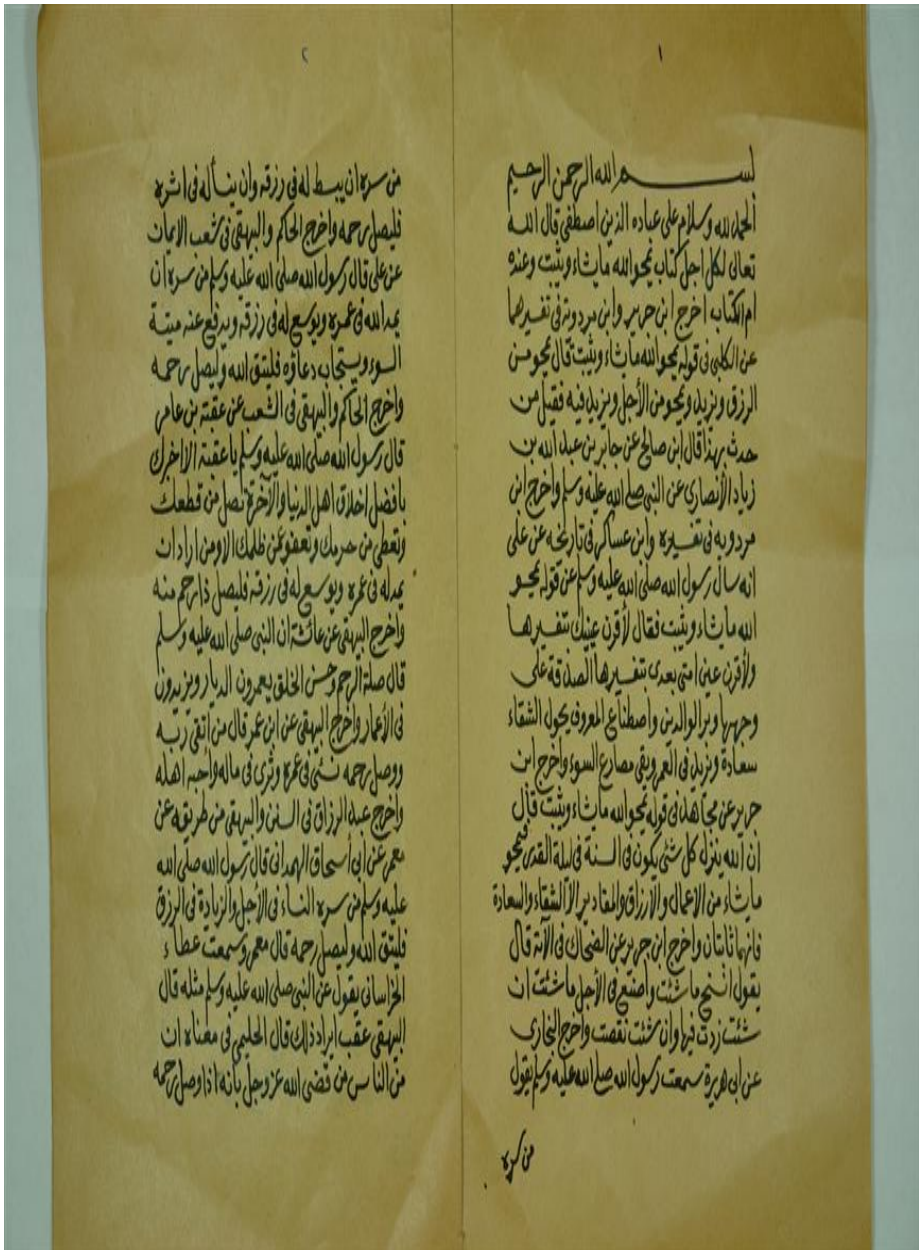 ١
بسم الله الرحمن الرحيم
الحمد لله وسلام على عباده الذين اصطفى قال الله
تعالى لكل اجل كتاب يمحو الله ما يشاء ويثبت وعنده
ام الكتاب اخرج ابن جرير وابن مردوية في تفسيرهما
عن الكلبي في قوله يمحو الله ما يشاء ويثبت قال يمحو من
الرزق ويزيد ويمحو من الأجل ويزيد فيه فقيل من
حدث بهذا قال ابن صالح عن جابر بن عبد الله بن
زياد الأنصاري عن النبي صلى الله عليه وسلم واخرج ابن
مردويه في تفسيره وابن عساكر في تاريخه عن على
انه سأل رسول الله صلى الله عليه وسلم عن قوله يمحو
الله ما يشاء ويثبت فقال لأقرن عينيك بتفسيرها
ولأقرن عين امتى بعدى بتفسيرها الصدقة على
وجهها وبر الوالدين واصطناع المعروف يحول الشقاء
سعادة ويزيد في العمر ويقى مصارع السوء واخرج ابن
جرير عن مجاهد في قوله يمحو الله ما يشاء ويثبت قال
ان الله ينزل كل شئ يكون في السنة في ليلة القدر فيمحو
ما يشاء من الاعمال والأرزاق والمقادير الا الشقاء والسعادة
فانهما ثابتان واخرج ابن جرير عن الضحاك في الآية قال
يقول انسخ ما شئت واصنع في الأجل ما شئت ان
شئت زدت فيها وان شئت نقصت واخرج البخارى
عن ابى هريرة سمعت رسول الله صلى الله عليه وسلم يقول
من سره
٢
من سره ان يبسط له في رزقه وان ينسأ له في اثره
فليصل رحمه واخرج الحاكم والبيهقى في شعب الايمان
عن على قال رسول الله صلى الله عليه وسلم من سره ان
يمد الله في عمره ويوسع له في رزقه ويدفع عنه ميتة
السوء ويستجاب دعاؤه فليتق الله وليصل رحمه
واخرج الحاكم والبيهقى في الشعب عن عقبة بن عامر
قال رسول الله صلى الله عليه وسلم يا عقبة الا اخبرك
بافضل اخلاق اهل الدنيا والآخرة تصل من قطعك
وتعطى من حرمك وتعفو عمن ظلمك الا ومن اراد ان
يمد له في عمره ويوسع له في رزقه فليصل ذا رحم منه
واخرج البيهقى عن عائشة ان النبى صلى الله عليه وسلم
قال صلة الرحم وحسن الخلق يعمرون الديار ويزيدون
في الأعمار واخرج البيهقى عن ابن عمر قال من اتقى ربه
ووصل رحمه نسئ في عمره وثرى في ماله واحبه اهله
واخرج عبد الرزاق في السنن والبيهقى من طريقه عن
معمر عن ابى أسحاق الهمدانى قال رسول الله صلى الله
عليه وسلم من سره النساء في الأجل والزيادة في الرزق
فليتق الله وليصل رحمه قال معمر وسمعت عطاء
الخراسانى يقول عن النبى صلى الله عليه وسلم مثله قال
البيهقى عقب ايراد ذلك قال الحليمى في معناه ان
من الناس من قضى الله عز وجل بأنه اذا وصل رحمه